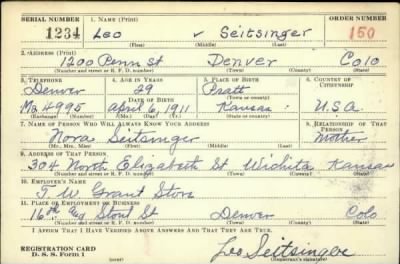 SERIAL NUMBER 1. NAME (Print) ORDER NUMBER
1234 Leo v Seitsinger 150
(First) (Middle) (Last)
2. ADDRESS (Print)
1200 Penn St Denver Colo
(Number and street or R. F. D. number) (Town) (County) (State)
3. TELEPHONE 4. AGE IN YEARS 5. PLACE OF BIRTH 6. COUNTRY OF CITIZENSHIP
Denver 29 Pratt
DATE OF BIRTH (Town or county)
Ma. 4995 April 6, 1911 Kansas U.S.A.
(Exchange) (Number) (Mo.) (Day) (Yr.) (State or country)
7. NAME OF PERSON WHO WILL ALWAYS KNOW YOUR ADDRESS 8. RELATIONSHIP OF THAT PERSON
Nora Seitsinger Mother
(Mr., Mrs., Miss) (First) (Middle) (Last)
9. ADDRESS OF THAT PERSON
304 North Elizabeth St Wichita Kansas
(Number and street or R. F. D. number) (Town) (County) (State)
10. EMPLOYER'S NAME
Grant Store
11. PLACE OF EMPLOYMENT OR BUSINESS
16th and Stout St Denver Colo
(Number and street or R. F. D. number) (Town) (County) (State)
I AFFIRM THAT I HAVE VERIFIED ABOVE ANSWERS AND THAT THEY ARE TRUE.
REGISTRATION CARD
D. S. S. Form 1
Leo Seitsinger
(Registrant's signature)